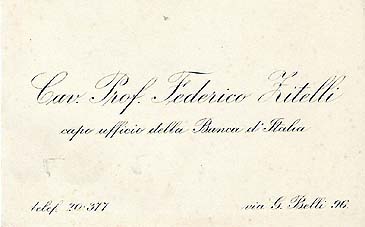 Cav. Prof. Federico Zitelli
capo ufficio della Banca d'Italia
telef. 20-377
via G. Belli 96